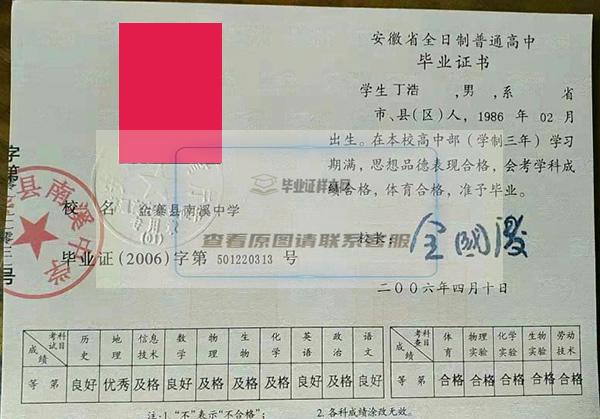 安徽省全日制普通高中
毕业证书
学生丁浩 ,男 ,系 省
市、县(区)人，1986 年 02月
出生。在本校高中部（学制三年）学习
期满，思想品德表现合格，会考学科成
绩合格，体育合格，准予毕业。
毕业证样本网
校 名 金寨县南溪中学
查看原图请联系客服
校长：
毕业证(2006)字第 501220313 号
二〇〇六年四月十日
县南溪中学
字第
号
考试科目 成绩 历史 地理 信息技术 数学 物理 生物 化学 英语 政治 语文
等 第 良好 优秀 及格 良好 及格 及格 及格 良好 及格 良好
考查科目 成绩 体育 物理实验 化学实验 生物实验 劳动技术
等 第 合格 合格 合格 合格 合格
注:1."不"表示"不合格"； 2.各科成绩涂改无效。